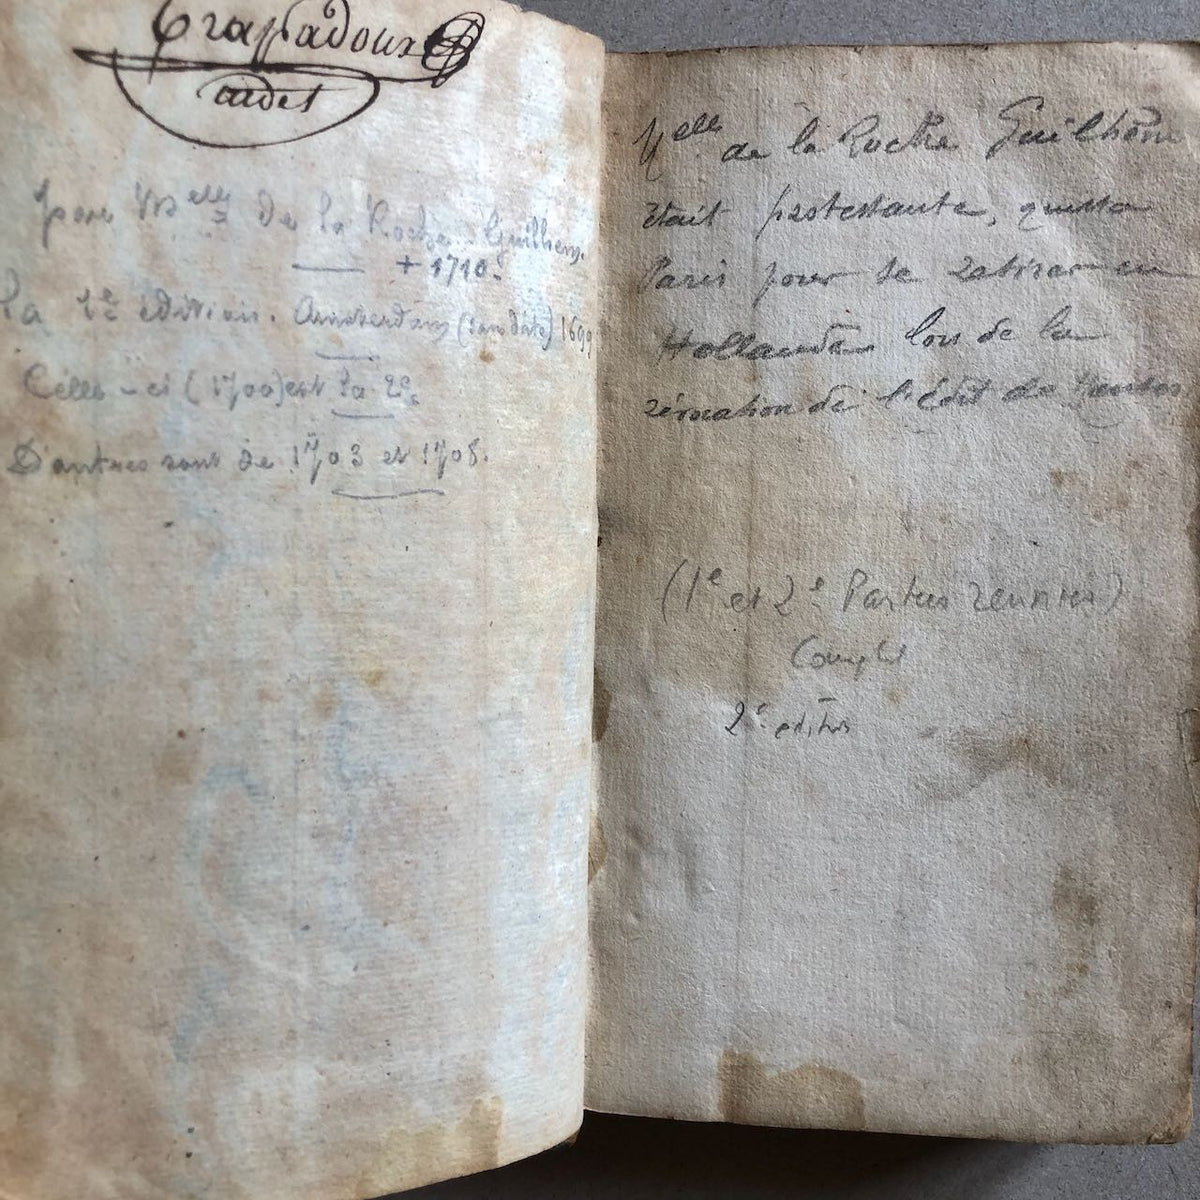 Trassadoux
cadet
par Melle de la Roche-Guilhem.
+ 1710.
La 1e édition. Amsterdam (sans date) 1699
Celle-ci (1700) est la 2e.
D'autres sont de 1703 et 1708.
Melle de la Roche Guilhem
était protestante, quitta
Paris pour se retirer en
Hollande lors de la
révocation de l'Édit de Nantes
(1e et 2e Parties réunies)
Complet
2e edition